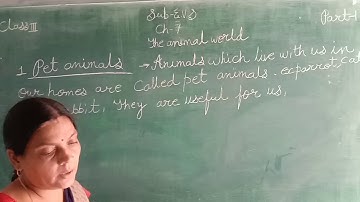 Class III Sub-EVS Part-1
Ch-7
The animal world
1 Pet animals → Animals which live with us in
our homes are called pet animals. ex parrot, cat
bbit, They are useful for us,